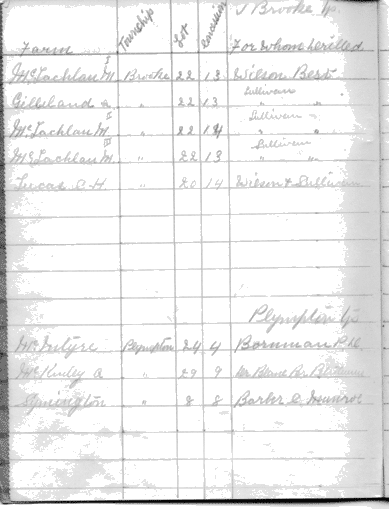 Brooke Tp.
Farm Township Lot Concession For Whom Drilled
McLachlan M. I Brooke 22 13 Wilson Best
Gilliland A. " 22 13 Sullivan " "
McLachlan M. II " 22 14 Sullivan " "
McLachlan M. III " 22 13 Sullivan " "
Lucas C. H. " 20 14 Wilson & Sullivan
Plympton Tp
McIntyre Plympton 24 4 Bornman
McKinley A " 29 9
Symington " 8 8 Barber & Munroe